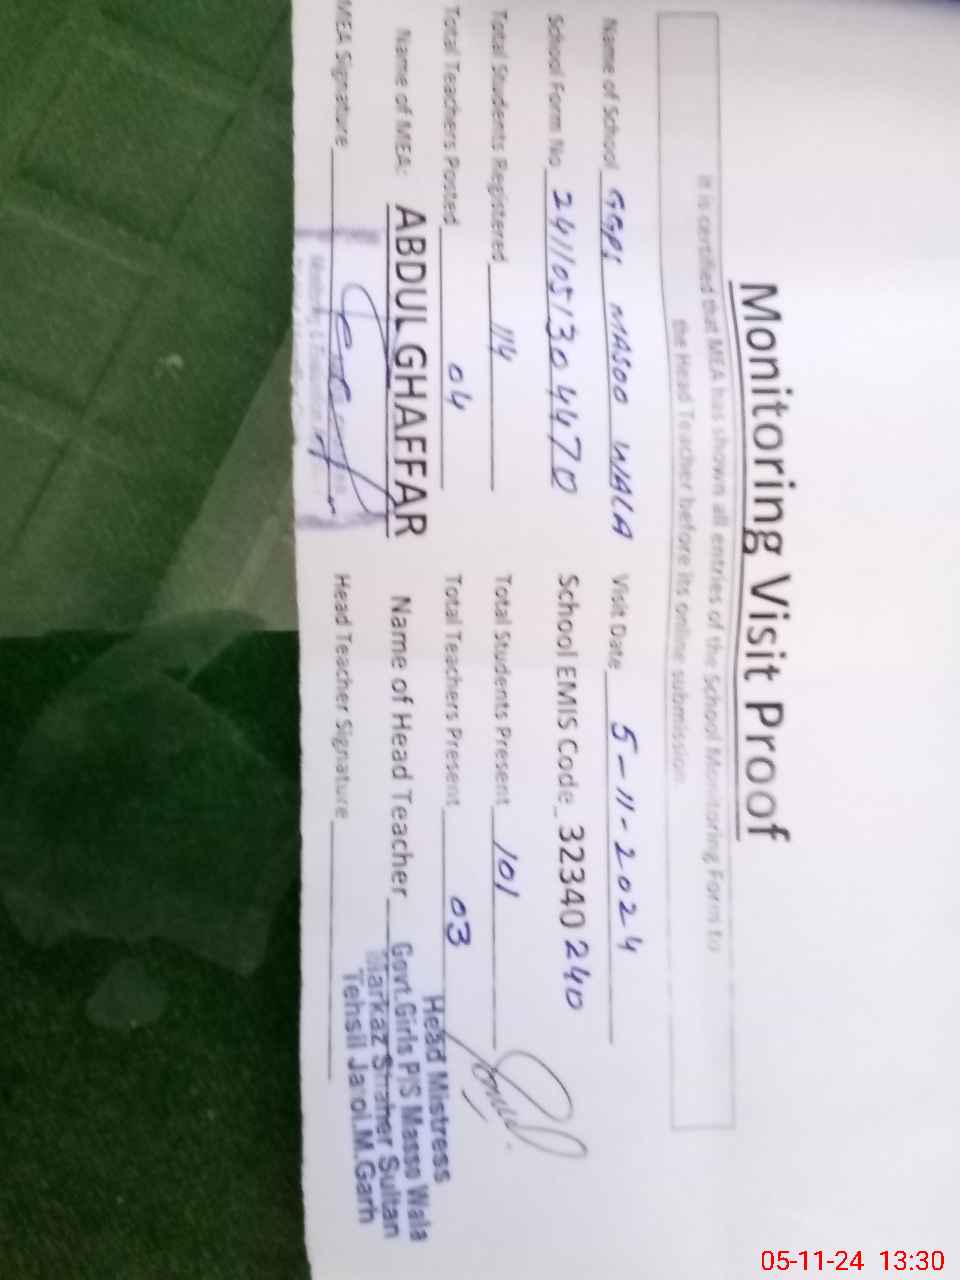 Monitoring Visit Proof
It is certified that MEA has shown all entries of the School Monitoring Form to
the Head Teacher before its online submission.
Name of School GGPS MASOO WALA Visit Date 5-11-2024
School Form No 2411051304470 School EMIS Code 32340240
Total Students Registered 114 Total Students Present 101
Total Teachers Posted 04 Total Teachers Present 03
Name of MEA: ABDUL GHAFFAR Name of Head Teacher
MEA Signature Head Teacher Signature
Head Mistress
Govt.Girls P/S Masso Wala
Markaz Shaher Sultan
Tehsil Jatoi.M.Garh
05-11-24 13:30